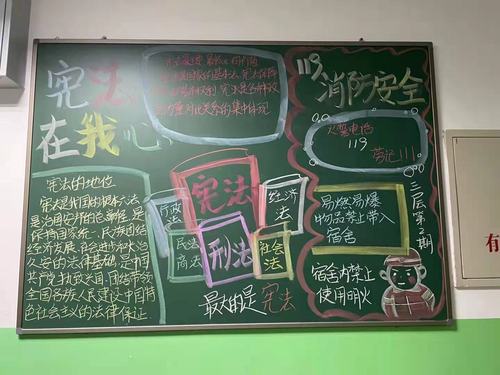 宪法
在我心
宪法的地位
宪法是我国的根本大法
是治国安邦的总章程,是
保持国家统一、民族团结
经济发展、社会进步和长治
久安的法律基础,是中国
共产党执政兴国、团结带领
全国各族人民建设中国特
色社会主义的法律保证
宪法
刑法
行政法
民法商法
经济法
社会法
最大的是宪法
119
消防安全
火警电话
119
劳记!!!
易燃易爆
物品禁止带入
宿舍
宿舍内禁止
使用明火
三层第2期
有